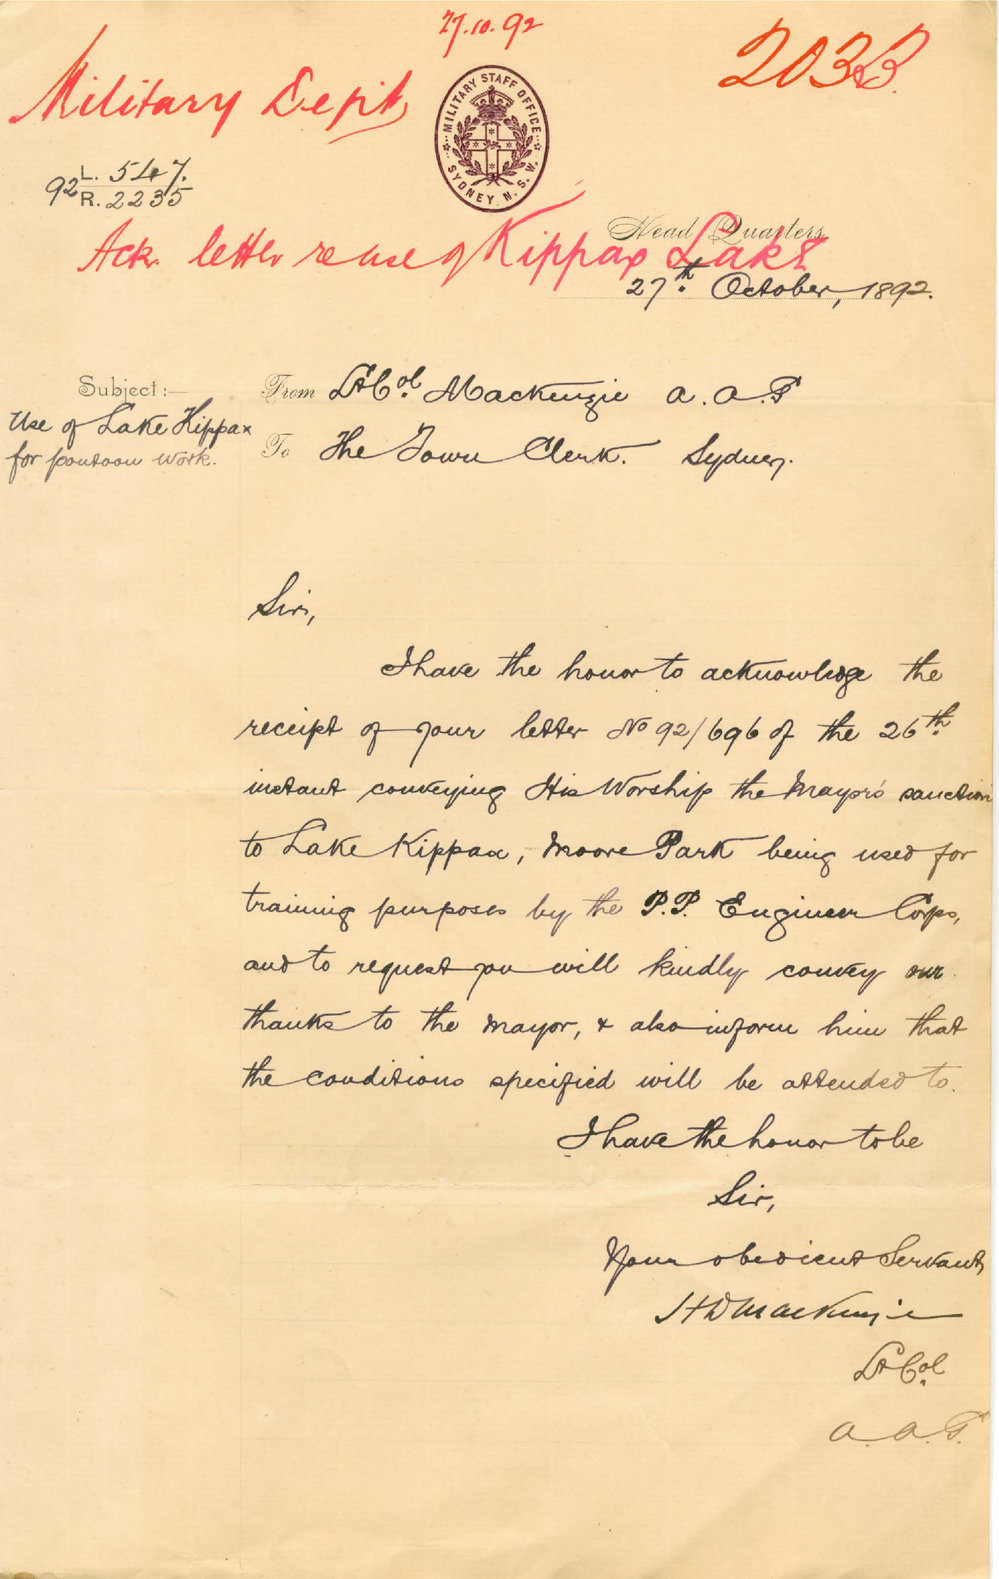 27.10.92
2033
Military Dept
MILITARY STAFF OFFICE
SYDNEY, N.S.W.
92 L. 547.
R. 2235
Head Quarters
Ack letter re use of Kippax Lake
27th October, 1892.
Subject:—
Use of Lake Kippax
for pontoon work.
From Lt Col. Mackenzie A.A.G
To The Town Clerk. Sydney.
Sir,
I have the honor to acknowledge the
receipt of your letter No 92/696 of the 26th
instant conveying His Worship the Mayor's sanction
to Lake Kippax, Moore Park being used for
training purposes by the P.P. Engineer Corps,
and to request you will kindly convey our
thanks to the Mayor, & also inform him that
the conditions specified will be attended to.
I have the honor to be
Sir,
Your obedient Servant
H D Mackenzie
Lt Col.
A.A.G.